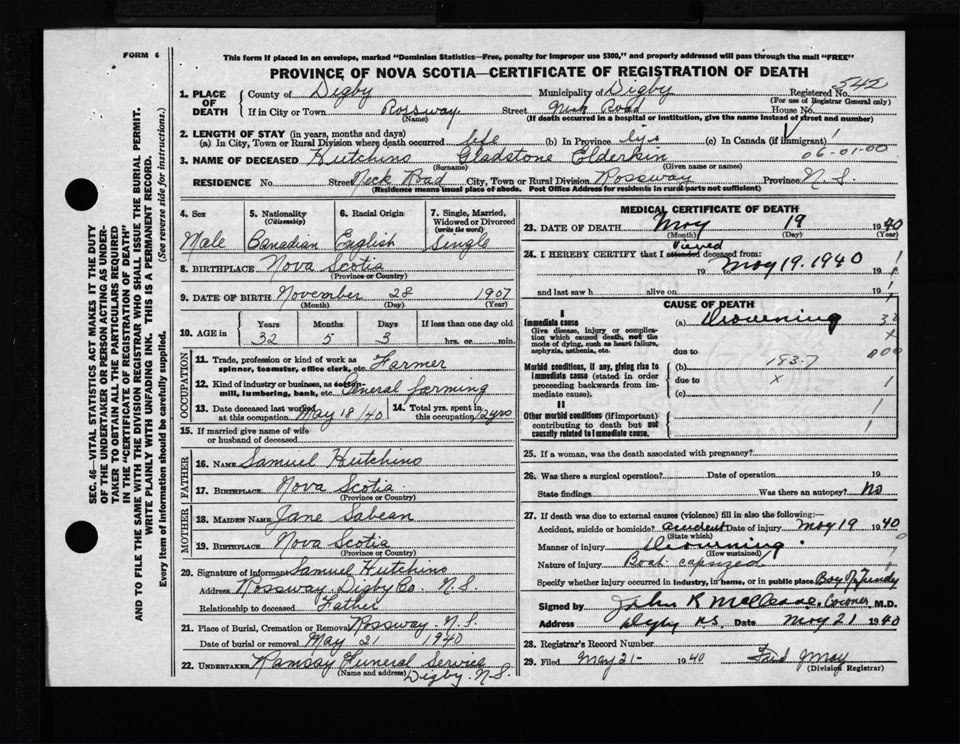 FORM 6
This form if placed in an envelope, marked "Dominion Statistics—Free, penalty for improper use $300," and properly addressed will pass through the mail "FREE"
PROVINCE OF NOVA SCOTIA—CERTIFICATE OF REGISTRATION OF DEATH
542
1. PLACE OF DEATH County of Digby Municipality of Digby Registered No.
(For use of Registrar General only)
If in City or Town Rossway Street Neck Road House No.
(Name) (If death occurred in a hospital or institution, give the name instead of street and number)
2. LENGTH OF STAY (in years, months and days)
(a) In City, Town or Rural Division where death occurred life (b) In Province (c) In Canada (if immigrant)
06-01-00
3. NAME OF DECEASED Hutchins Gladstone Elderkin
(Surname) (Given name or names)
RESIDENCE No. Street Neck Road City, Town or Rural Division Rossway Province N.S.
(Residence means usual place of abode. Post Office Address for residents in rural parts not sufficient)
4. Sex 5. Nationality (Citizenship) 6. Racial Origin 7. Single, Married, Widowed or Divorced (write the word)
Male Canadian English Single
8. BIRTHPLACE Nova Scotia
(Province or Country)
9. DATE OF BIRTH November 28 1907
(Month) (Day) (Year)
10. AGE in Years Months Days If less than one day old
32 5 3 hrs. or min.
OCCUPATION
11. Trade, profession or kind of work as spinner, teamster, office clerk, etc. Farmer
12. Kind of industry or business, as cotton-mill, lumbering, bank, etc. General farming
13. Date deceased last worked at this occupation May 18/40 14. Total yrs. spent in this occupation 12 yrs
15. If married give name of wife or husband of deceased
FATHER
16. NAME Samuel Hutchins
17. BIRTHPLACE Nova Scotia
(Province or Country)
MOTHER
18. MAIDEN NAME Jane Sabean
19. BIRTHPLACE Nova Scotia
(Province or Country)
20. Signature of informant Samuel Hutchins
Address Rossway, Digby Co. N.S.
Relationship to deceased Father
21. Place of Burial, Cremation or Removal Rossway N.S.
Date of burial or removal May 21 1940
22. UNDERTAKER Ramsay Funeral Service
(Name and address) Digby. N.S.
MEDICAL CERTIFICATE OF DEATH
23. DATE OF DEATH May 19 1940
(Month) (Day) (Year)
24. I HEREBY CERTIFY that I attended Viewed deceased from:
19 May 19. 1940 19
and last saw h alive on 19
CAUSE OF DEATH
I
Immediate cause (a) Drowning
Give disease, injury or complication which caused death, not the mode of dying, such as heart failure, asphyxia, asthenia, etc.
due to
Morbid conditions, if any, giving rise to immediate cause (stated in order proceeding backwards from immediate cause).
(b) 183.7
due to x
(c)
II
Other morbid conditions (if important) contributing to death but not causally related to immediate cause.
25. If a woman, was the death associated with pregnancy?
26. Was there a surgical operation? Date of operation 19
State findings Was there an autopsy? No
27. If death was due to external causes (violence) fill in also the following:
Accident, suicide or homicide? accident Date of injury May 19 1940
(State which)
Manner of injury Drowning.
(How sustained)
Nature of injury Boat capsized
Specify whether injury occurred in industry, in home, or in public place Bay of Fundy
Signed by John R Coroner, M.D.
Address Digby N.S. Date May 21 1940
28. Registrar's Record Number
29. Filed May 21- 1940 Fred J May
(Division Registrar)
SEC. 46—VITAL STATISTICS ACT MAKES IT THE DUTY
OF THE UNDERTAKER OR PERSON ACTING AS UNDER-
TAKER TO OBTAIN ALL THE PARTICULARS REQUIRED
IN THE "CERTIFICATE OF REGISTRATION OF DEATH"
AND TO FILE THE SAME WITH THE DIVISION REGISTRAR WHO SHALL ISSUE THE BURIAL PERMIT.
WRITE PLAINLY WITH UNFADING INK. THIS IS A PERMANENT RECORD.
Every item of information should be carefully supplied. (See reverse side for instructions.)